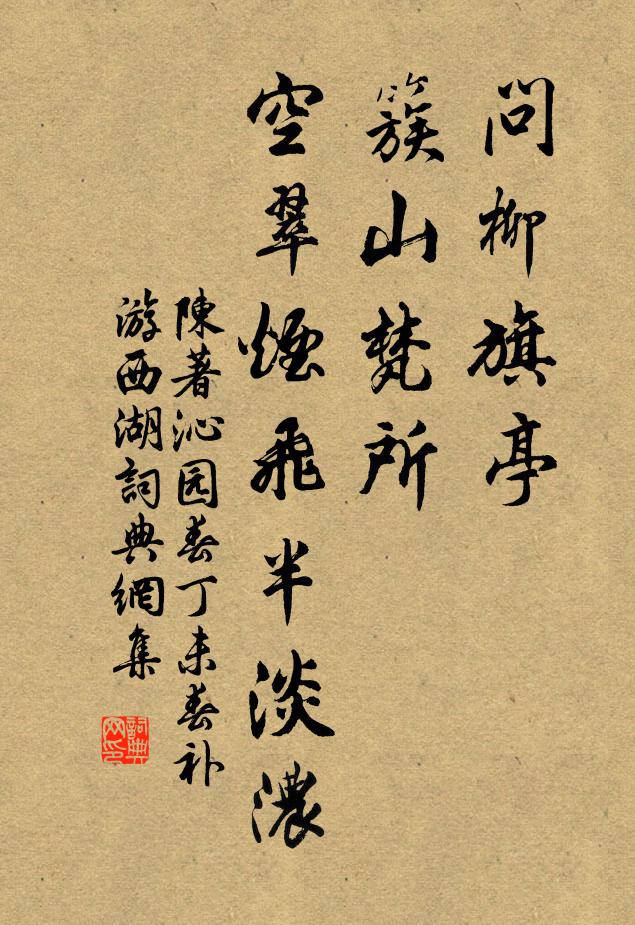 問柳旗亭
簇山梵所
空翠煙飛半淡濃
陳著沁园春丁未春补
游西湖詞典網集
詞典
网印